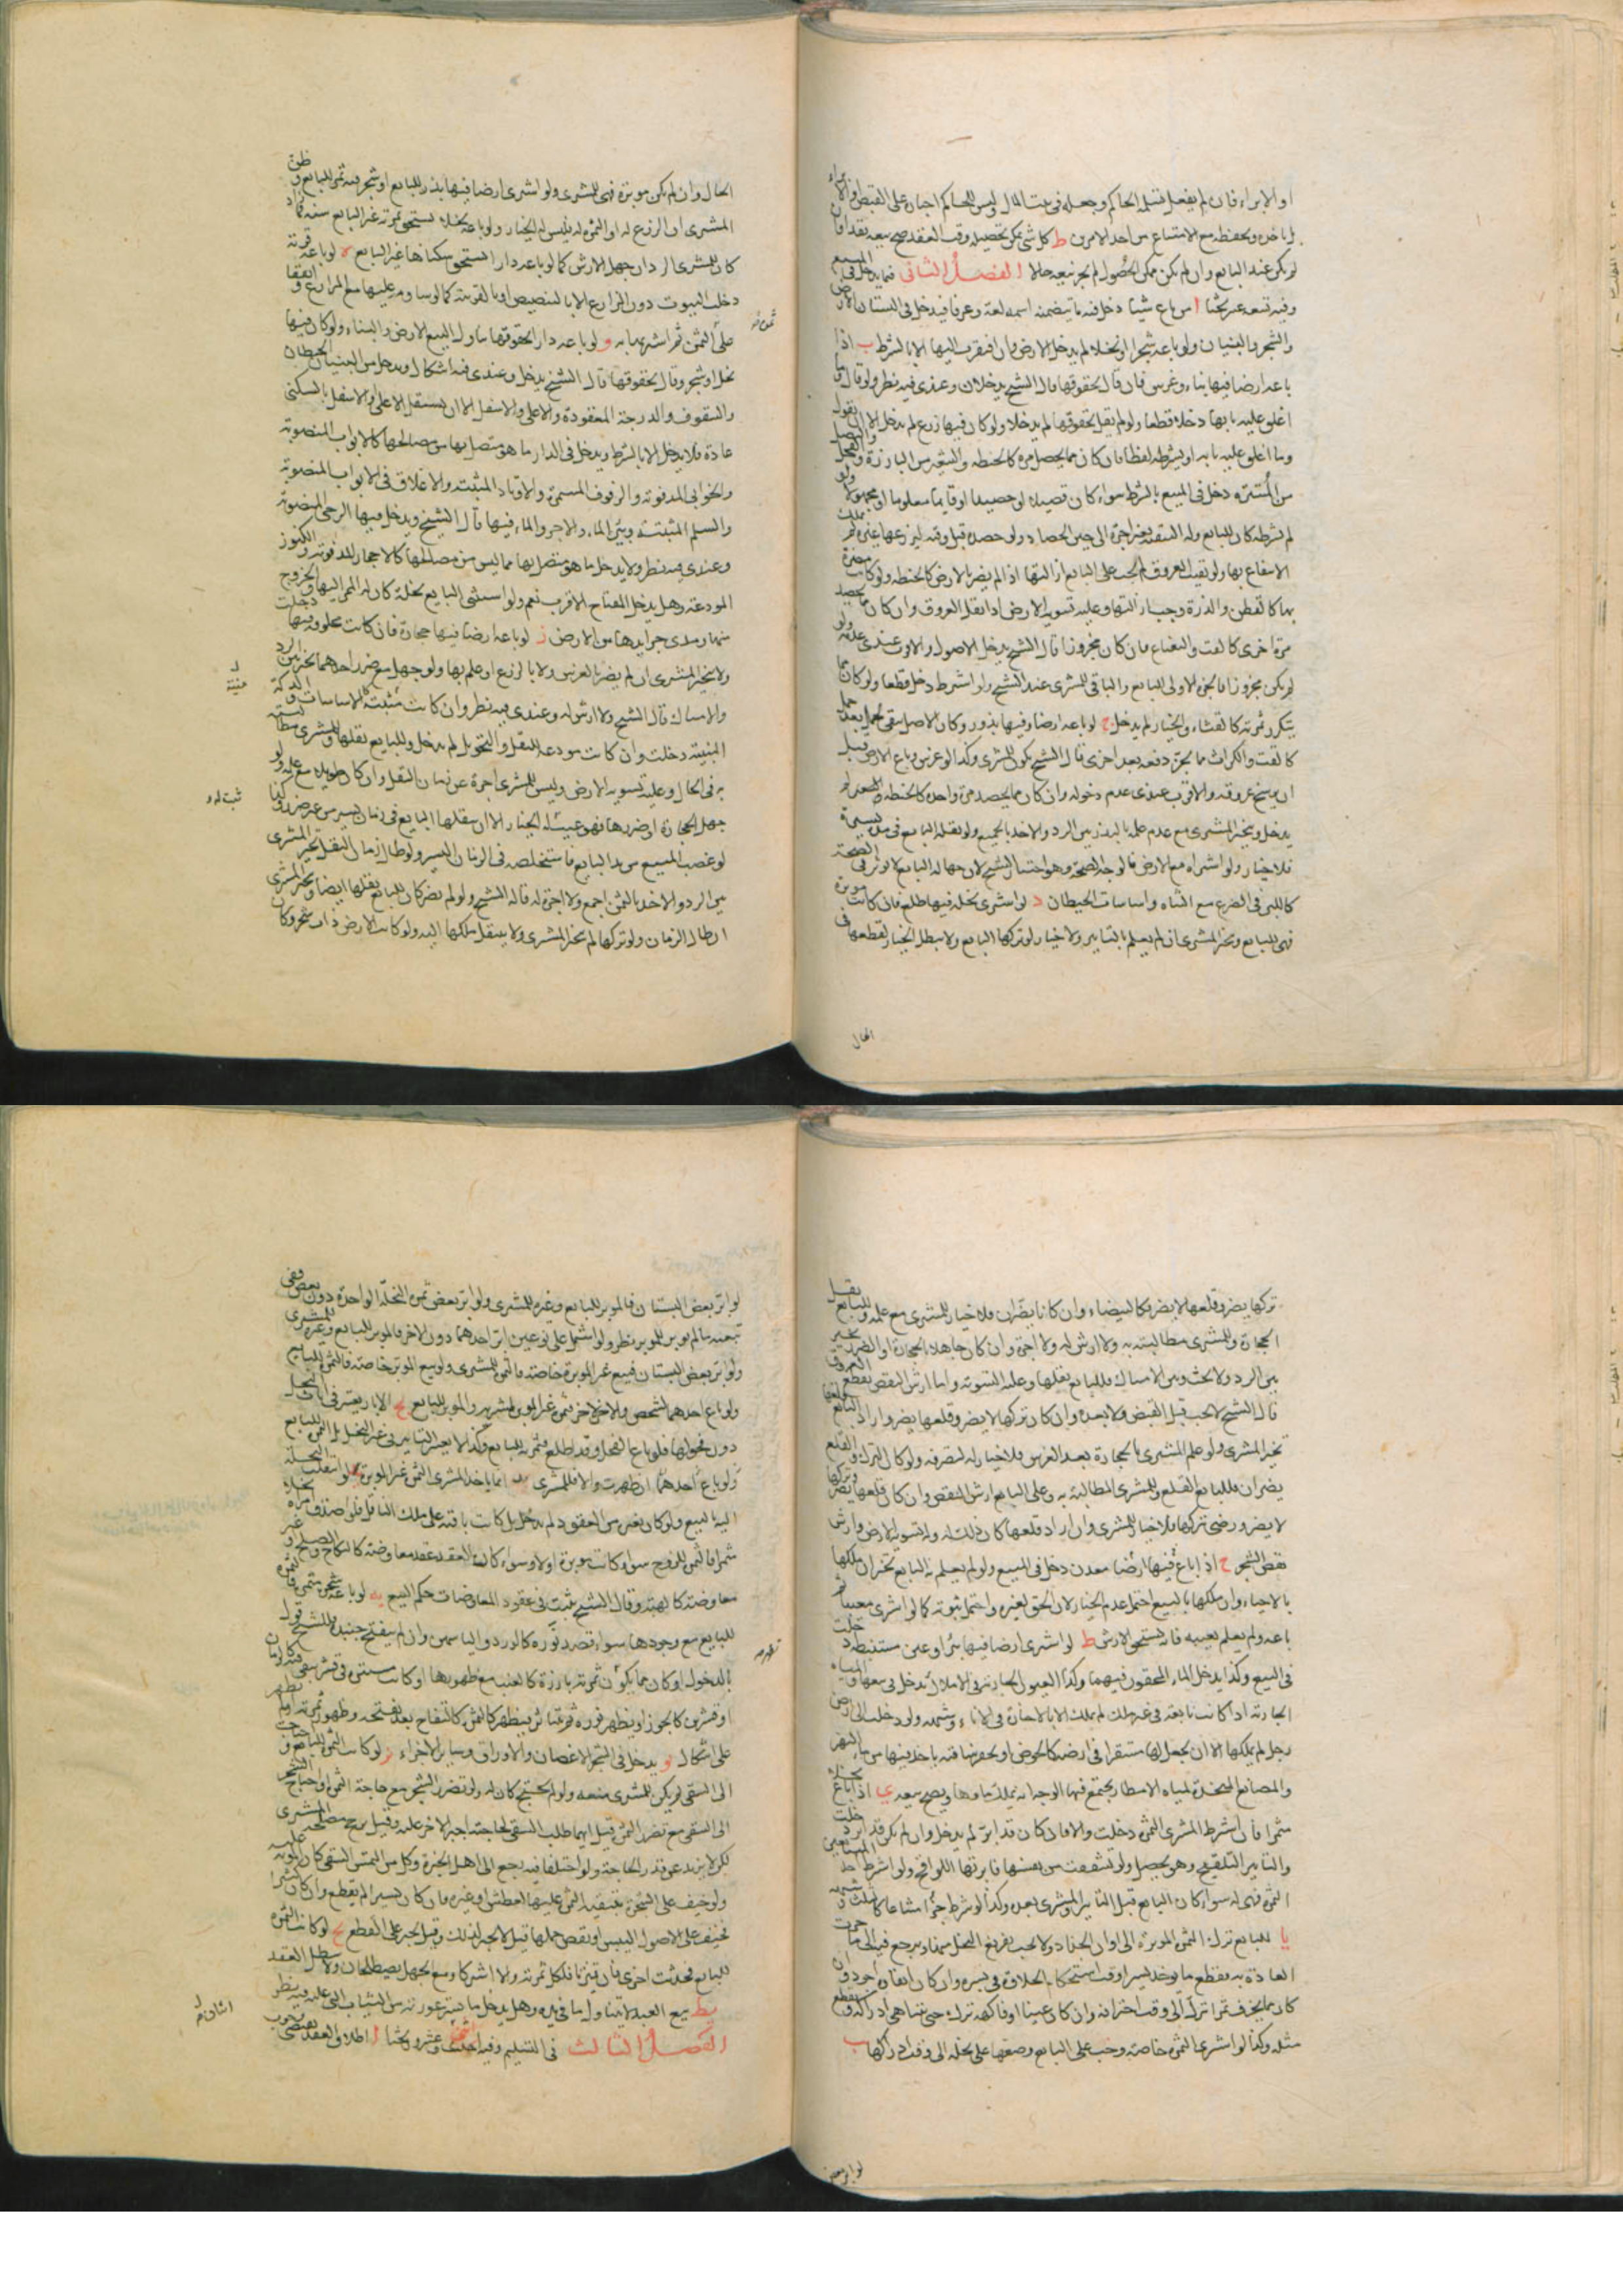 او الابراء فان لم يفعل قبله الحاكم وجعله في بيت المال وليس للحاكم اجباره على القبض والابراء
لياخذه ويحفظه مع الامتناع من احد الامرين ط كل شي يمكن تحصيله وقت العقد صح بيعه نقدا فان
لم يكن عند البايع وان لم يكن ممكن الحصول لم يجز بيعه حالا الفصل الثاني فيما يدخل في المبيع
وفيه تسعه عشر بحثا ا من باع شيئا دخل فيه ما يتضمنه اسمه لغة وعرفا فيدخل في البستان الارض
والشجر والبنيان ولو باعه شجرا او نخلا لم يدخل الارض وان افتقرت اليها الا بالشرط ب اذا
باعه ارضا فيها بناء وغرس فان قال بحقوقها قال الشيخ يدخلان وعندي فيه نظر ولو قال وما
اغلق عليه بابها دخلا قطعا ولو لم يقل بحقوقها لم يدخلا ولو كان فيها زرع لم يدخل الا ان يقول
وما اغلق عليه بابه او يشترطه لفظا فان كان مما يحصد مرة كالحنطه والشعير
دخل في المبيع بالشرط سواء كان قصيلا او حصيدا او قايما معلوما او مجهولا ولو
لم يشترطه كان للبايع وله التبقيه بغير اجرة الى حين الحصاد ولو حصده قبل وقته ليزرعها غيره لم يملك
الانتفاع بها ولو بقيت العروق لم يجب على البايع ازالتها اذا لم يضر بالارض كالحنطه ولو كان مضرة
بها كالقطن والذرة وجب ازالتها وعليه تسوية الارض اذا نقل العروق وان كان يحصد
مرة اخرى كالقت والنعناع فان كان مجزوزا قال الشيخ يدخل الاصول
لم يكن مجزوزا فالجزة الاولى للبايع والباقي للمشتري عند الشيخ ولو اشترط دخل قطعا ولو كان مما
يتكرر ثمرته كالقثاء والخيار لم يدخل ج لو باعه ارضا وفيها بذور وكان لاصل يبقى لحمل بعد حمل
كالقت والكراث مما يجز دفعه بعد اخرى قال الشيخ يكون للمشتري وكذا لو غرس وباع الارض قبل
ان يرسخ عروقه والاقرب عندي عدم دخوله وان كان مما يحصد مرة واحدة كالحنطه والشعير لم
يدخل ويخير المشتري مع عدم علمه بالبذر بين الرد والاخذ بالجميع ولو نقله البايع في مدة يسيرة
فلا خيار ولو اشتراه مع الارض فالوجه الصحة وهو اختيار الشيخ لان جهالة البايع لا توثر في الصحة
كاللبن في الضرع مع الشاه واساسات الحيطان د لو اشترى نخله فيها طلع فان كانت موبرة
فهي للبايع ويخير المشتري ان لم يعلم بالتابير ولا خيار لو تركها البايع ولا يبطل الخيار لقطعها في
الحال
الحال وان لم يكن موبرة فهي للمشتري ولو اشترى ارضا فيها بذر للبايع او شجر فيه ثمر للبايع وظن
المشتري ان الزرع له او الثمرة له فليس له الخيار ولو باعه نخلا يستحق ثمرته غير البايع سنه
كان للمشتري الرد ان جهل لا الارش كما لو باعه دارا استحق سكناها غير البايع ه لو باعه قرية
دخلت البيوت دون المزارع الا بالتنصيص او بالقرينة كما لو ساومه عليها مع المزارع واتفقا
على الثمن ثم اشتراها به و لو باعه دارا بحقوقها تناول البيع الارض والبناء ولو كان فيها
نخل او شجر وقال بحقوقها قال الشيخ يدخل وعندي فيه اشكال ويدخل من البنيان الحيطان
والسقوف والدرجة المعقودة والاعلى والاسفل الا ان يستقل الاعلى والاسفل بالسكنى
عادة فلا يدخل الا بالشرط ويدخل في الدار ما هو متصل بها من مصالحها كالابواب المنصوبة
والخوابي المدفونه والرفوف المسمرة والاوتاد المثبته والاغلاق في الابواب المنصوبة
والسلم المثبتة وبئر الماء والاجر والماء فيها قال الشيخ ويدخل فيها الرحى المنصوبة
وعندي فيه نظر ولا يدخل ما هو متصل بها مما ليس من مصالحها كالاحجار المدفونه والكنوز
المودعة وهل يدخل المفتاح الاقرب نعم ولو استثنى البايع نخلة كان له الممر اليها والخروج
منها ومدى جرايدها من الارض ز لو باعه ارضا فيها حجارة فان كانت مخلوقة فيها دخلت
ولا يتخير المشتري ان لم يضر بالغرس ولا بالزرع او علم بها ولو جهل مع ضرر احدهما تخير بين الرد
والامساك قال الشيخ ولا ارش له وعندي فيه نظر وان كانت مثبتة كالاساسات والدكة
المبنية دخلت وان كانت مودعة للنقل والتحويل لم يدخل وللبايع نقلها وللمشتري مطالبته
به في الحال وعليه تسويه الارض وليس للمشتري اجرة عن زمان النقل وان كان طويلا مع علمه ولو
جهل الحجارة او ضررها فهو عيب له الخيار الا ان ينقلها البايع في زمان يسير من غير ضرر وكذا
لو غصب المبيع من يد البايع فاستخلصه في الزمان اليسير ولو طال زمان النقل تخير المشتري
بين الرد والاخذ بالثمن اجمع ولا اجرة له قاله الشيخ ولو لم يضر كان للبايع نقلها ايضا وتخير المشتري
ان طال الزمان ولو تركها لم يتخير المشتري ولا ينتقل ملكها اليه ولو كانت الارض ذات شجر وكان
تركها يضر وقلعها لا يضر فكالبيضاء وان كانا يضران فلا خيار للمشتري مع علمه وللبايع نقل
الحجارة وللمشتري مطالبته به ولا ارش له ولا اجرة وان كان جاهلا بالحجارة او الضرر تخير
بين الرد وبين الامساك فللبايع نقلها وعليه التسويه واما ارش النقص بقطع العروق
قال الشيخ لا يجب قبل القبض ولا بعده وان كان تركها لا يضر وقلعها يضر واراد البايع قلعها
تخير المشتري ولو علم المشتري بالحجارة بعد الغرس فلا خيار له لتصرفه ولو كان الترك والقلع
يضران فللبايع القلع وللمشتري المطالبة به وعلى البايع ارش النقص وان كان قلعها يضر وتركها
لا يضر ورضي بتركها فلا خيار للمشتري وان اراد قلعها كان ذلك له وله تسوية الارض وارش
نقص الشجر ح اذا باع فيها ارضا معدن دخل في المبيع ولو لم يعلم به البايع تخير ان ملكها
بالاحياء وان ملكها بالبيع احتمل عدم الخيار لان الحق لغيره واحتمل ثبوته كما لو اشترى معيبا ثم
باعه ولم يعلم بعيبه فانه يستحق الارش ط لو اشترى ارضا فيها بئر او عين مستنبطه دخلت
في البيع وكذا يدخل الماء المحقون فيهما وكذا العيون الجارية في الاملاك تدخل في بيعها والمياه
الجارية اذا كانت نابعة في غير ملك لم يملك الا بالاحازة في الاناء وشبهه ولو دخلت الى ارض
رجل لم يملكها الا ان يجعل لها مستقرا في ارضه كالحوض او يحفر ساقية ياخذ فيها من ماء النهر
والمصانع المتخذة لمياه الامطار يجتمع فيها الوجه انه يملك ماوها ويصح بيعه ي اذا باع نخلا
مثمرا فان اشترط المشتري الثمرة دخلت والا فان كان قد ابر لم يدخل وان لم يكن قد ابر دخلت
والتابير التلقيح وهو يحصل ولو تشققت من نفسها فابرتها اللواقح ولو اشترط احد المتبايعين
الثمرة فهي له سواء كان البايع قبل التابير او المشتري بعده وكذا لو شرط جزءا مشاعا كالثلث
يا للبايع ترك الثمرة الموبرة الى اوان الجذاذ ولا يجب تفريغ النخل منها ويرجع فيه الى ما جرت
العادة به بقطع ما يوخذ بسرا وقت استحكام الحلاوة في بسره وان كان ابقاه اجود وان
كان مما يجفف تمرا ترك الى وقت اخترافه وان كان عنبا او فاكهة ترك حتى تناهي ادراكه ويقطع
مثله وكذا لو اشترى الثمرة خاصة وجب على البايع وضعها على نخله الى وقت ادراكها يب
لو ابر بعض
لو ابر بعض البستان فالموبر للبايع وغيره للمشتري ولو ابر بعض ثمرة النخلة الواحدة دون بعض ففي
تبعية ما لم يوبر للموبر نظر ولو اشتمل على نوعين ابر احدهما دون الاخر فالموبر للبايع وغيره للمشتري
ولو ابر بعض البستان فبيع غير الموبرة خاصة فالثمرة للمشتري ولو بيع الموبر خاصة فالثمرة للبايع
ولو باع احدهما لشخص والاخر لاخر فثمرة غير الموبر لمشتريه والموبر للبايع يج الابار يعتبر في اناث النخل
دون فحولها فلو باع الفحول وقد اطلع فثمرته للبايع وكذا لا يعتبر التابير في غير النخل بل الثمرة للبايع
ان ظهرت والا فللمشتري يد انما ياخذ المشتري الثمرة غير الموبرة لو انتقلت النخلة
اليه بالبيع ولو كان بغيره من العقود لم يدخل بل كانت باقية على ملك الناقل فلو اصدق امراة نخلا
مثمرا فالثمرة للزوج سواء كانت موبرة او لا وسواء كان العقد عقد معاوضة كالنكاح والصلح او غير
معاوضة كالهبة وقال الشيخ يثبت في عقود المعاوضات حكم البيع يه لو باعه شجرة مثمرة فالثمرة
للبايع مع وجودها سواء قصد نوره كالورد والياسمين وان لم يتفتح جنبذه وللشيخ قول
بالدخول او كان مما يكون ثمرته بارزة كالعنب مع ظهورها او كانت مستترة في قشر يبقى فيه كالرمان
او قشرين كالجوز او يظهر نوره ثم يتناثر فيظهر كالتفاح بعد تفتحه وظهور ثمرته
على اشكال يو يدخل في الشجر الاغصان والاوراق وساير الاجزاء يز لو كانت الثمرة للبايع واحتاجت
الى السقي لم يكن للمشتري منعه ولو لم يحتج كان له ولو تضرر الشجر مع حاجة الثمرة او احتاج الشجر
الى السقي مع تضرر الثمرة قيل ايهما طلب السقي لحاجته اجبر الاخر عليه وقيل يرجح مصلحة المشتري
لكن لا يزيد عن قدر الحاجة ولو اختلفا فيه رجع الى اهل الخبرة وكل من التمس السقي كان المونة عليه
ولو خيف على الشجرة بتبقية الثمرة عليها لعطش او غيره فان كان يسيرا لم يقطع وان كان كثيرا
فخيف على الاصول اليبس او نقص حملها قيل لا يجبر لذلك وقيل يجبر على القطع يح لو كانت الثمرة
للبايع فحدثت اخرى فان تميزتا فلكل ثمرته والا اشتركا ومع الجهل يصطلحان ولا يبطل العقد
يط بيع العبد لا يتناول ما في يده وهل يدخل ما يستر عورته من الثياب التي عليه فيه نظر
الفصل الثالث في التسليم وفيه عشرون بحثا ا اطلاق العقد يقتضي